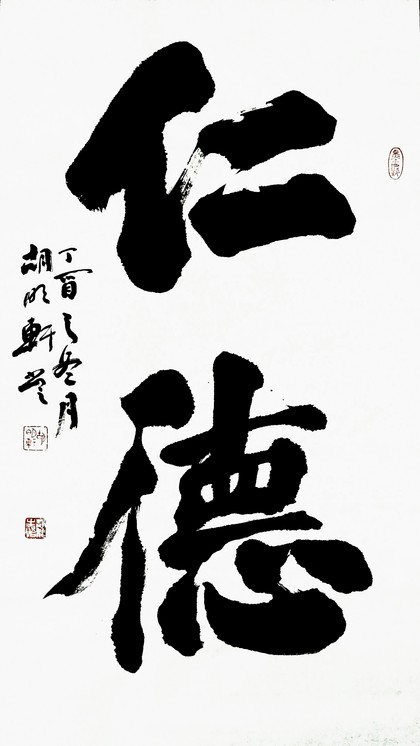 仁德
丁酉之冬月
胡明軒書